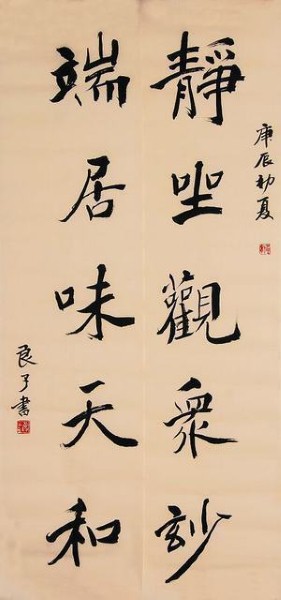 庚辰初夏
靜坐觀衆玅
端居味天和
良 書